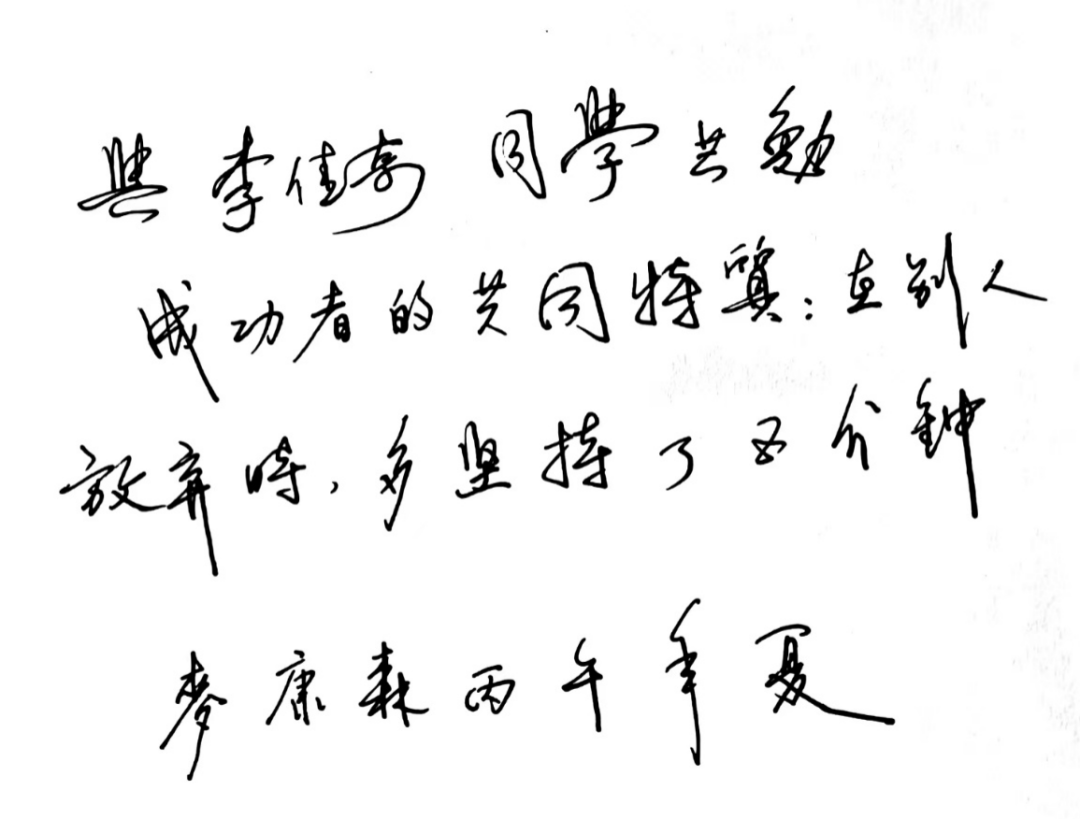 與李佳奇 同學共勉
成功者的共同特質：在別人
放弃時，多坚持了五分鐘
麥康森丙午年夏